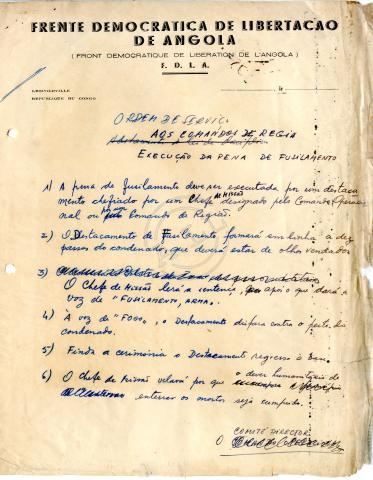 FRENTE DEMOCRATICA DE LIBERTACAO
DE ANGOLA
(FRONT DEMOCRATIQUE DE LIBERATION DE L'ANGOLA)
F. D. L. A.
LEOPOLDVILLE
REPUBLIQUE DU CONGO
ORDEM DE SERVIÇO
AOS COMANDOS DE REGIÃ
EXECUÇÃO DA PENA DE FUSILAMENTO
1) A pena de fusilamento deve ser executada por um destaca
mento chefiado por um Chefe de Missão designado pelo Comando Operacio
nal ou pelo Comando de Região.
2) O Destacamento de Fusilamento formará em linha a dez
passos do condenado, que deverá estar de olhos vendados
3)
O Chefe de Missão lerá a sentença, após o que dará a
voz de "FUSILAMENTO, ARMA.
4) À voz de "FOGO", o Destacamento dispara contra o peito do
condenado.
5) Finda a cerimónia o Destacamento regressa à base.
6) O Chefe de Missão velará por que o dever humanitário de
enterrar os mortos seja cumprido.
COMITÉ DIRECTOR
O